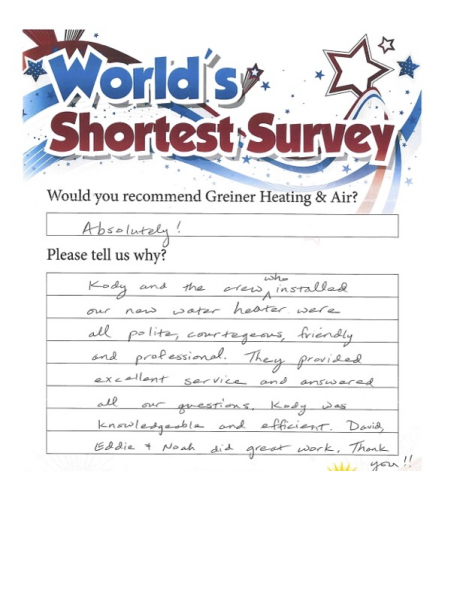 World's
Shortest Survey
Would you recommend Greiner Heating & Air?
Absolutely!
Please tell us why?
Kody and the crew who installed
our new water heater were
all polite, courtegeous, friendly
and professional. They provided
excellent service and answered
all our questions. Kody was
knowledgeable and efficient. David,
Eddie + Noah did great work. Thank
you!!